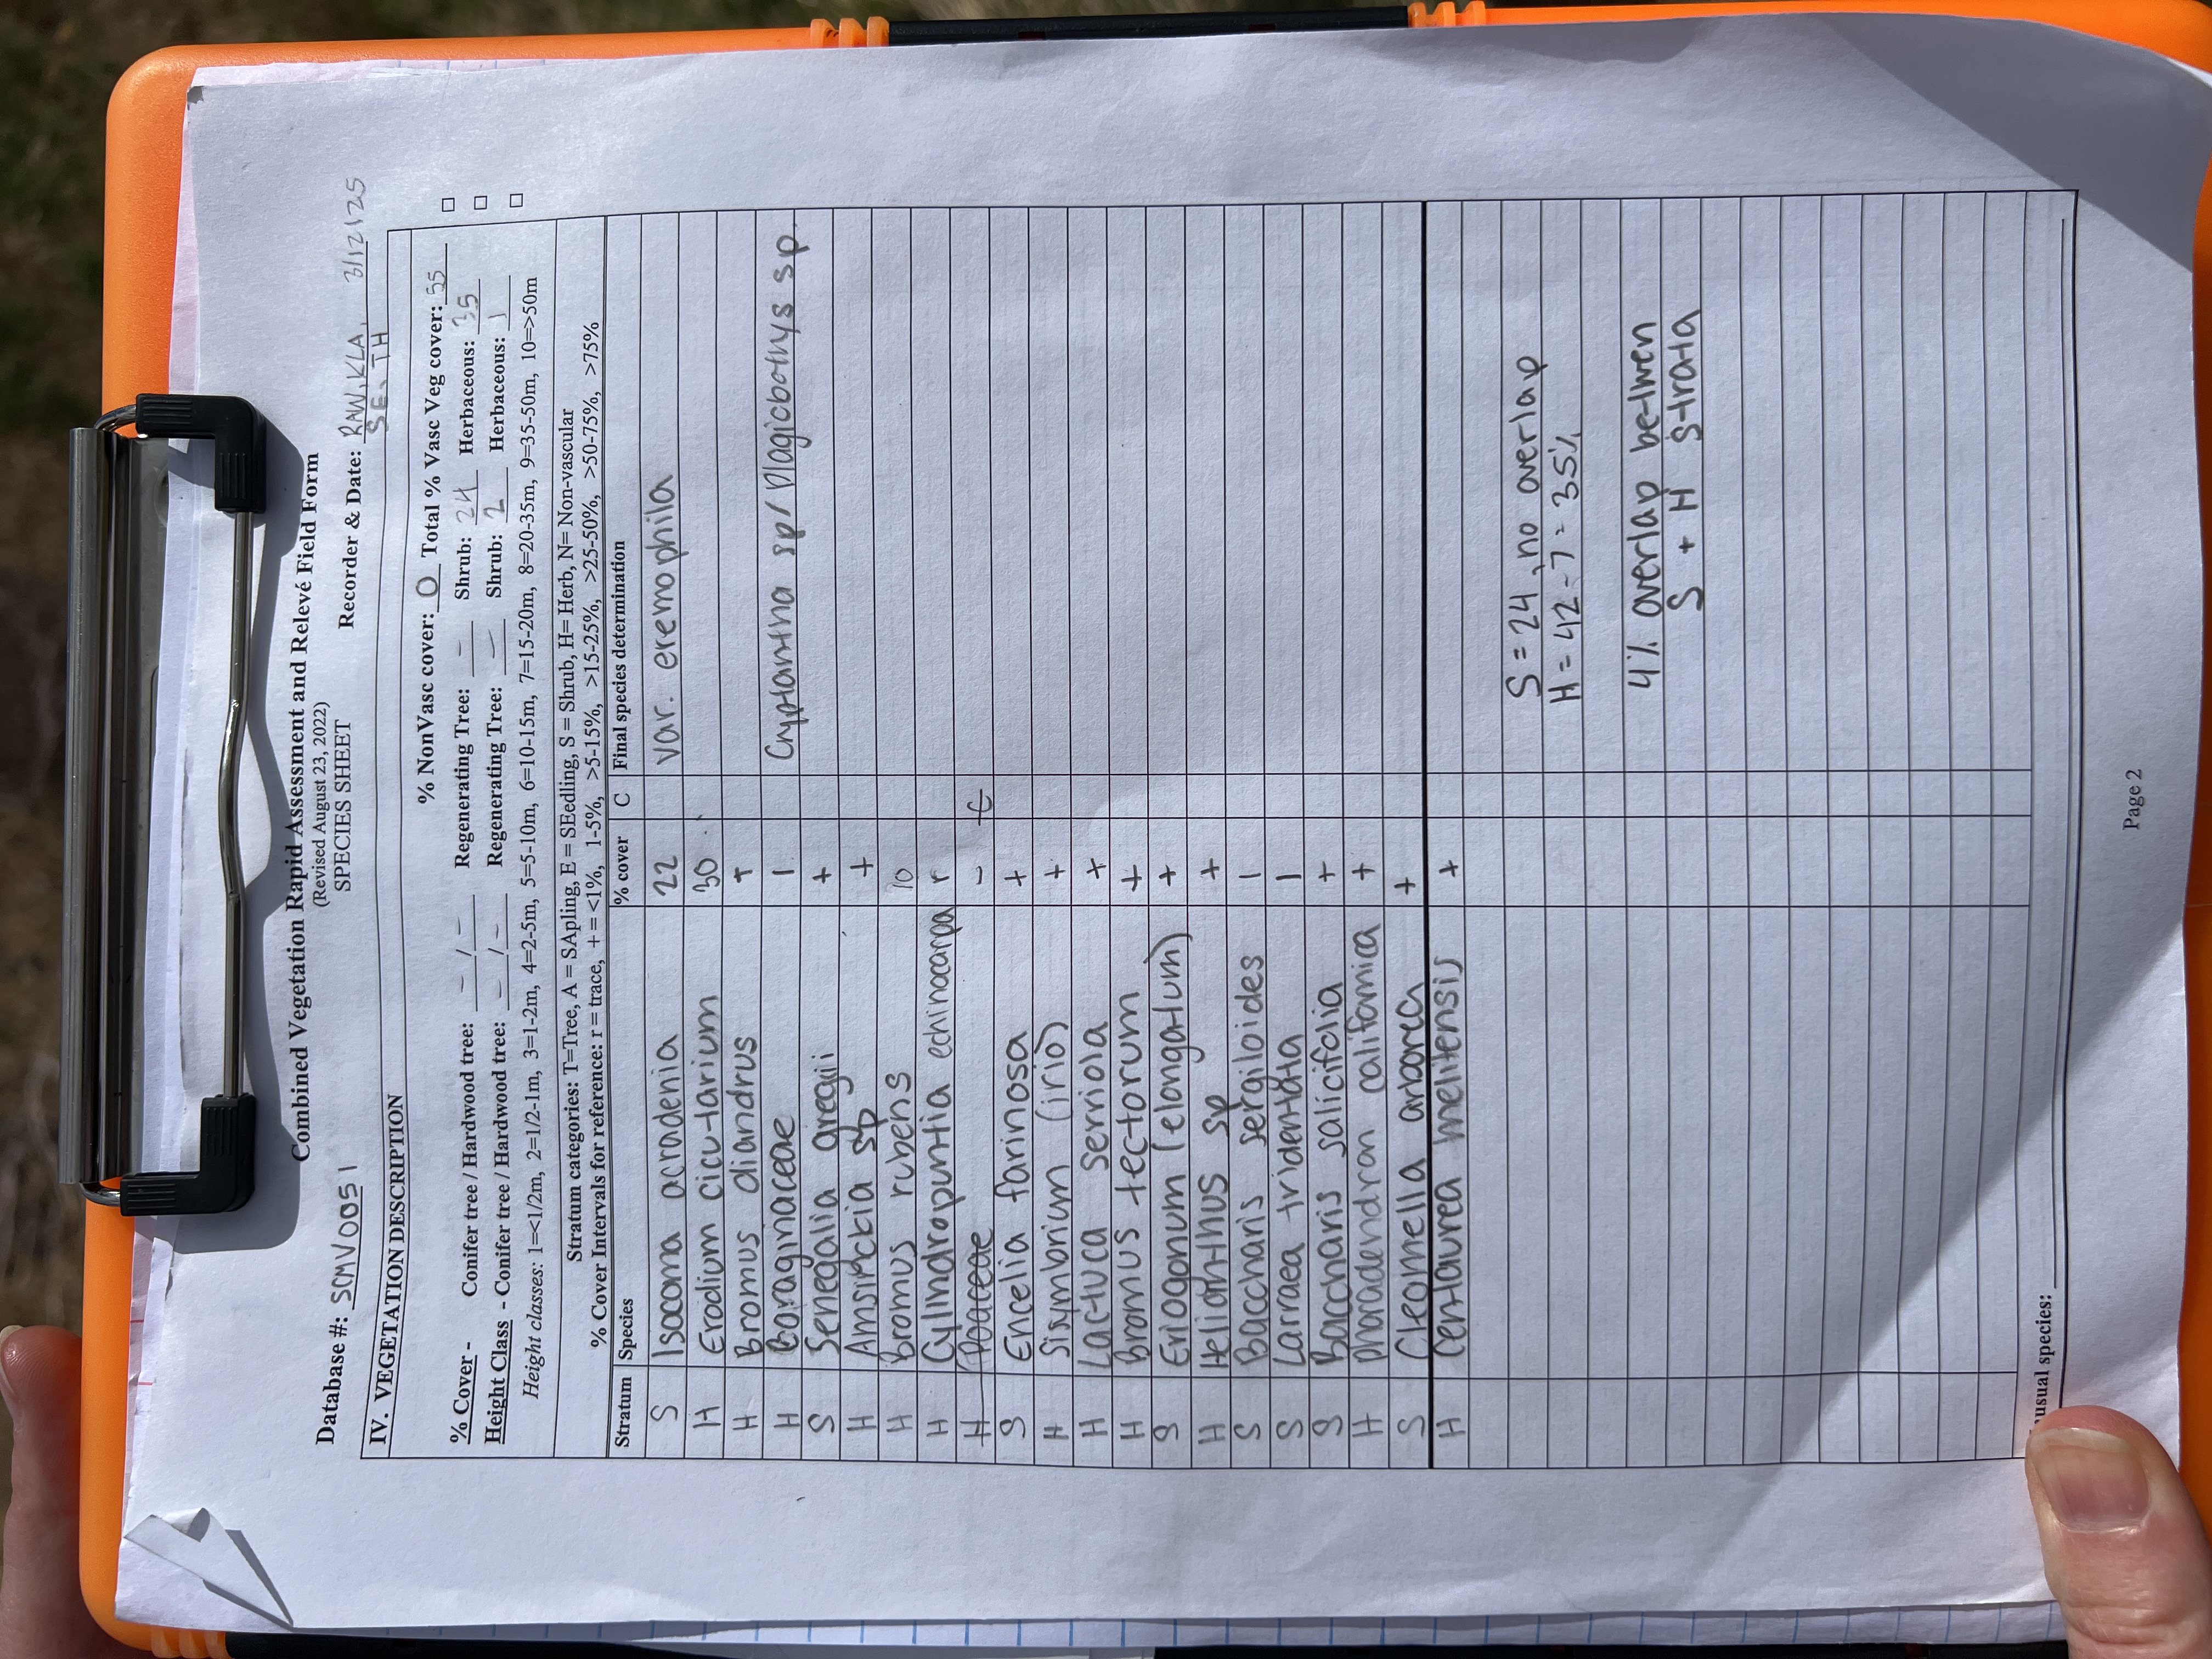 Combined Vegetation Rapid Assessment and Relevé Field Form
(Revised August 23, 2022)
SPECIES SHEET
Database #: SCMV0051 Recorder & Date: RAW, KLA, 3/12/25
SE, TH
IV. VEGETATION DESCRIPTION
% NonVasc cover: 0 Total % Vasc Veg cover: 55 □
% Cover - Conifer tree / Hardwood tree: - / - Regenerating Tree: - Shrub: 24 Herbaceous: 35 □
Height Class - Conifer tree / Hardwood tree: - / - Regenerating Tree: - Shrub: 2 Herbaceous: 1 □
Height classes: 1=<1/2m, 2=1/2-1m, 3=1-2m, 4=2-5m, 5=5-10m, 6=10-15m, 7=15-20m, 8=20-35m, 9=35-50m, 10=>50m
Stratum categories: T=Tree, A = SApling, E = SEedling, S = Shrub, H= Herb, N= Non-vascular
% Cover Intervals for reference: r = trace, + = <1%, 1-5%, >5-15%, >15-25%, >25-50%, >50-75%, >75%
Stratum Species % cover C Final species determination
S Isocoma acradenia 22 var. eremophila
H Erodium cicutarium 30
H Bromus diandrus +
H Boraginaceae 1 Cryptantha sp/ Plagiobothys sp.
S Senegalia gregii +
H Amsinckia sp +
H Bromus rubens 10
H Cylindropuntia echinocarpa r
H Poaceae - C
S Encelia farinosa +
H Sisymbrium (irio) +
H Lactuca serriola +
H Bromus tectorum +
S Eriogonum (elongatum) +
H Helianthus sp +
S Baccharis sergiloides 1
S Larraea tridentata 1
S Baccharis salicifolia +
H Phoradendran californica +
S Cleomella arborea +
H Centaurea melitensis +
S = 24, no overlap
H = 42 - 7 = 35%
4% overlap betwen
S + H strata
usual species:
Page 2